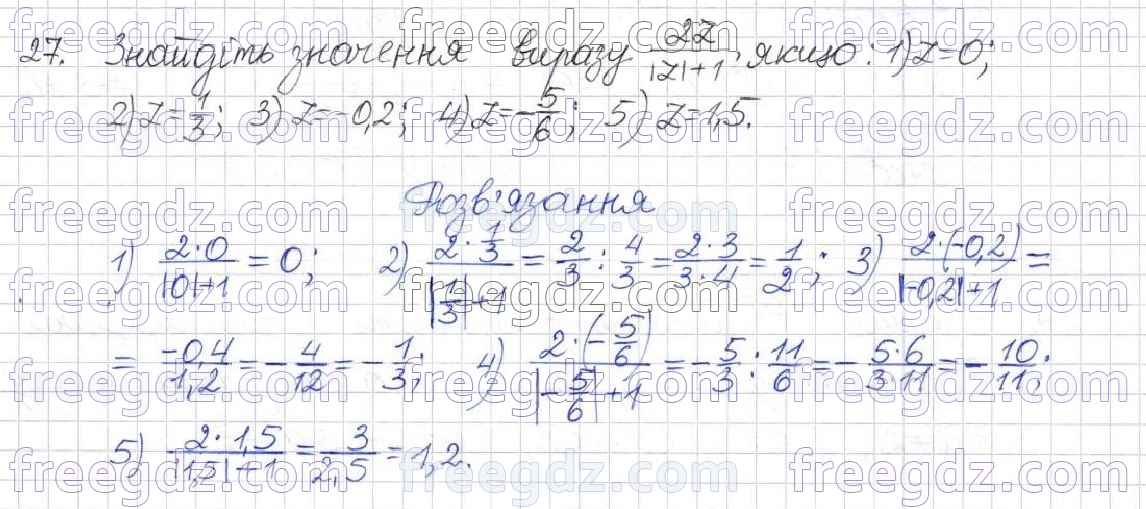 27. Знайдіть значення виразу 2z/(|z|+1), якщо: 1) z=0;
2) z=1/3; 3) z=-0,2; 4) z=-5/6; 5) z=1,5.
Розв'язання
1) (2·0)/(|0|+1) = 0; 2) (2·1/3)/(|1/3|+1) = 2/3 : 4/3 = (2·3)/(3·4) = 1/2; 3) (2·(-0,2))/(|-0,2|+1) =
= (-0,4)/(1,2) = -4/12 = -1/3; 4) (2·(-5/6))/(|-5/6|+1) = -5/3 : 11/6 = -(5·6)/(3·11) = -10/11;
5) (2·1,5)/(|1,5|+1) = 3/2,5 = 1,2.
freegdz.com